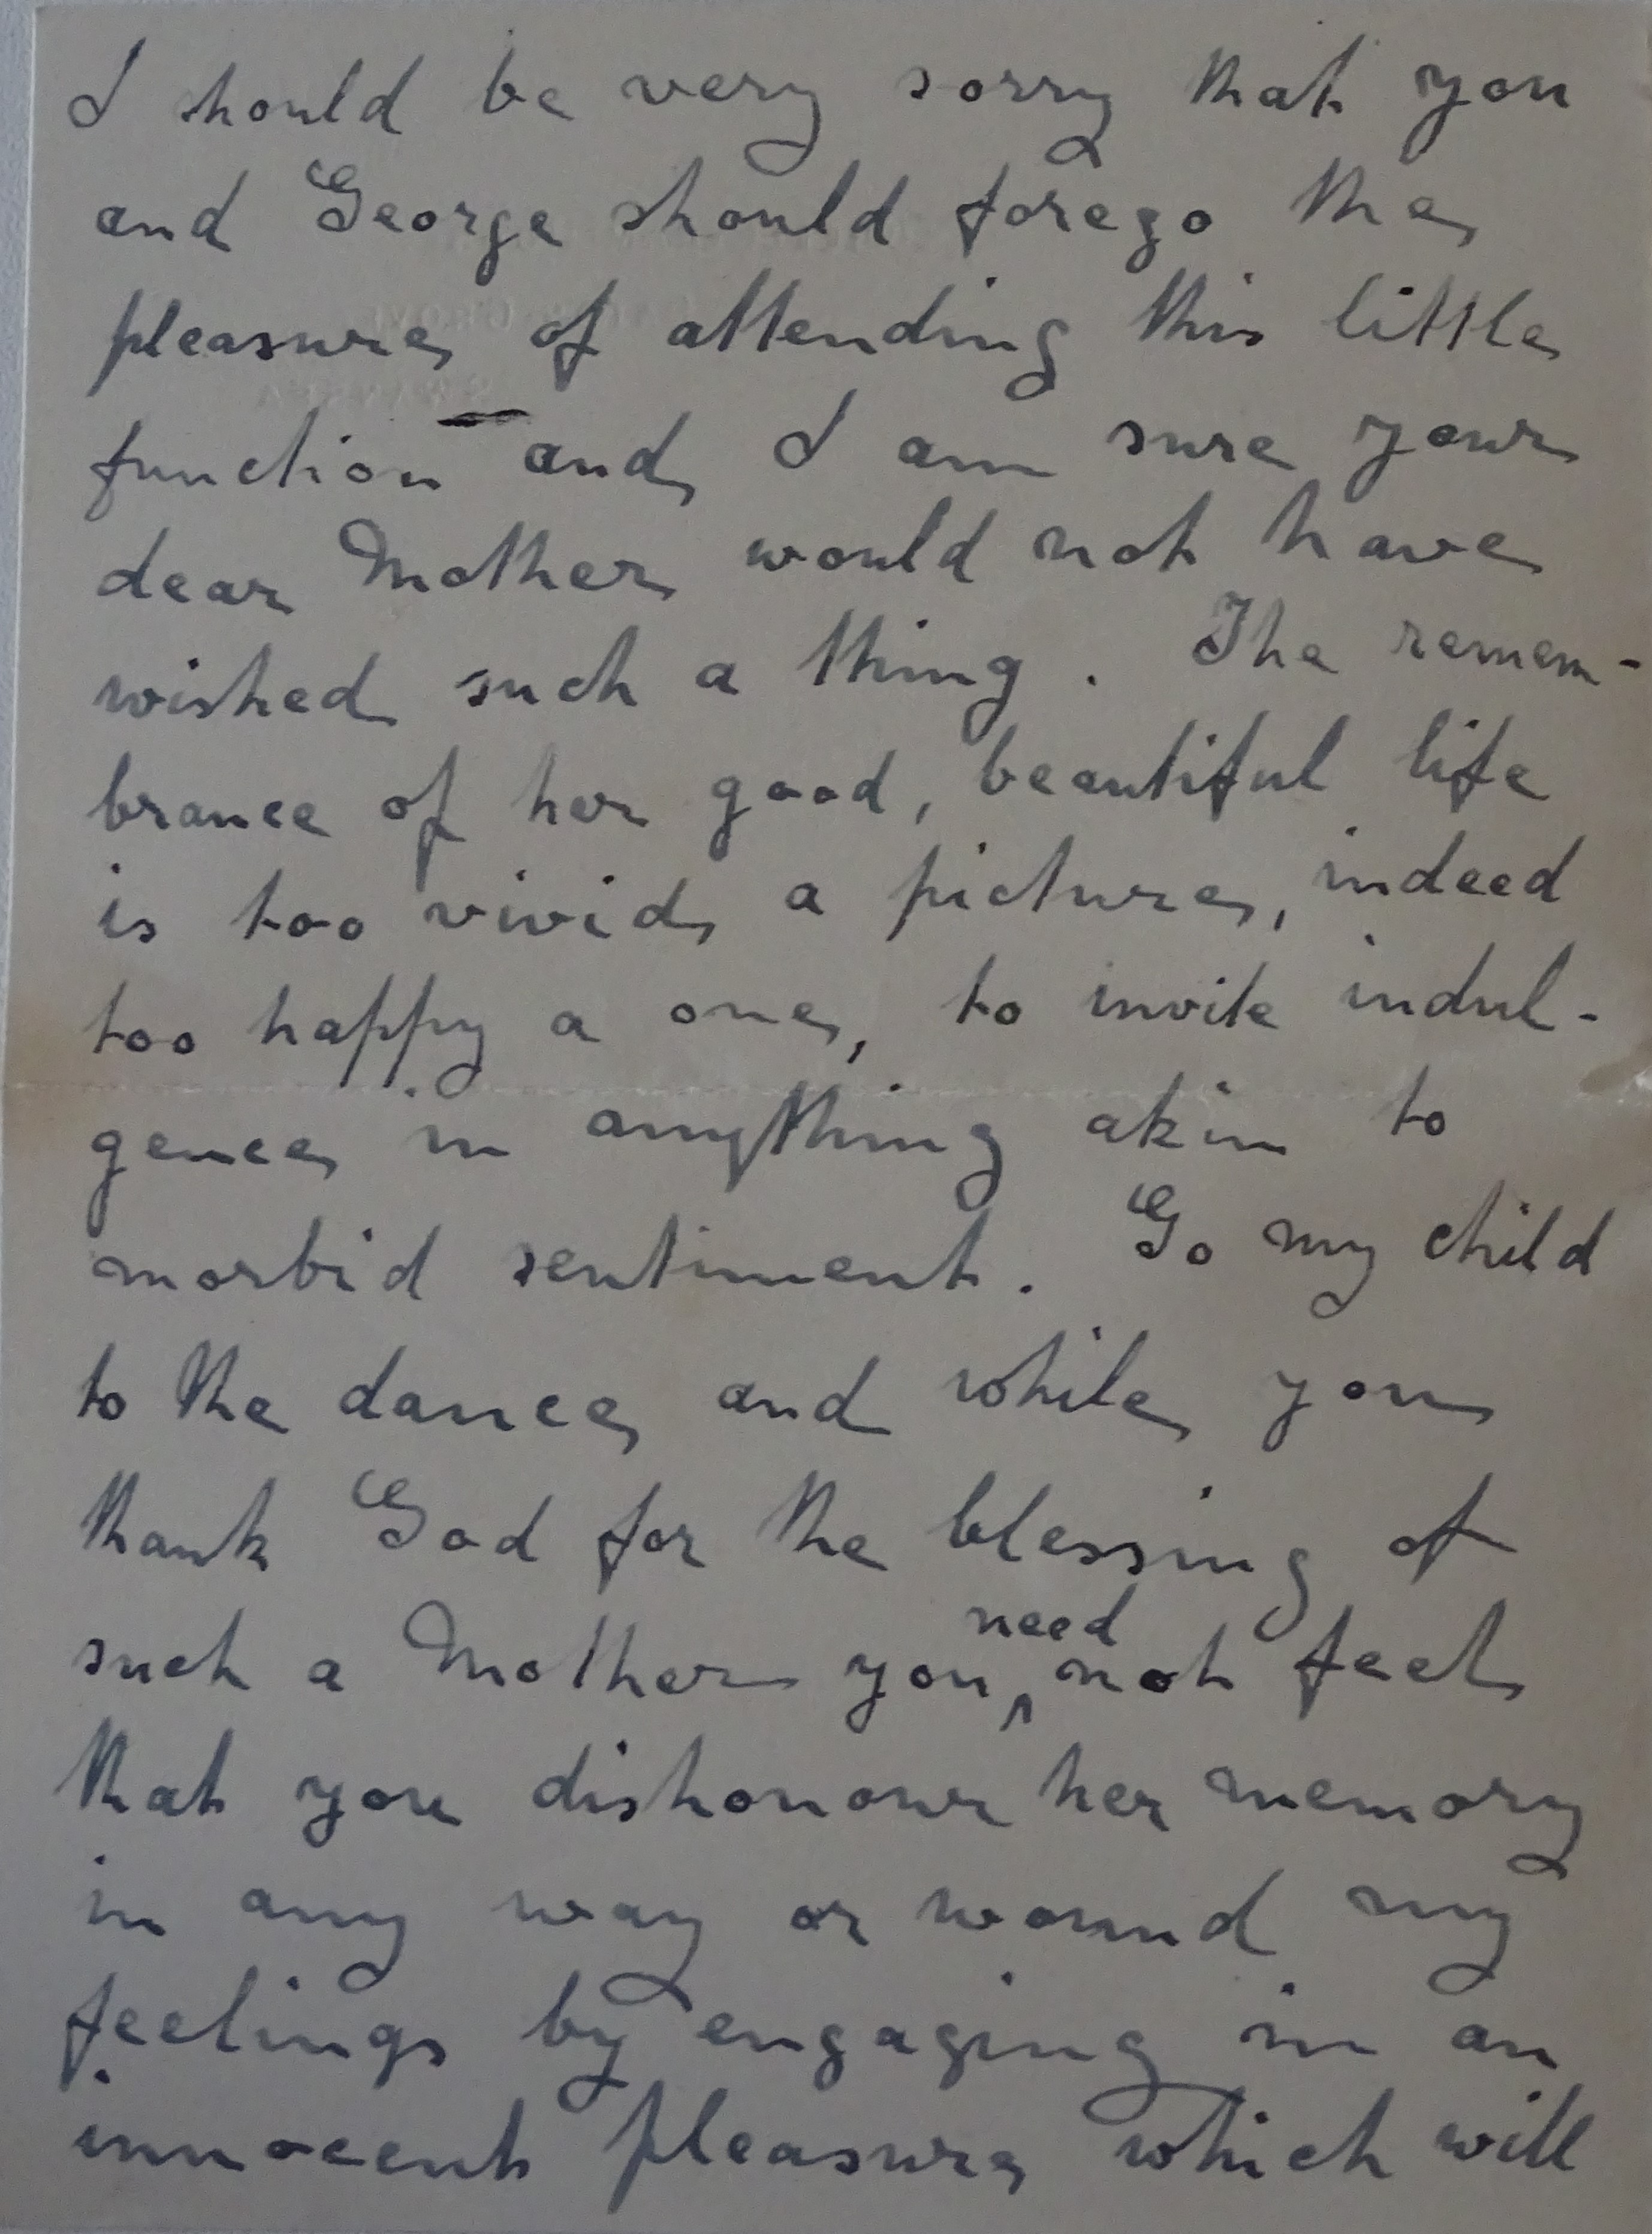 I should be very sorry that you
and George should forego the
pleasure of attending this little
function and I am sure your
dear Mother would not have
wished such a thing. The remem-
brance of her good, beautiful life
is too vivid a picture, indeed
too happy a one, to invite indul-
gence in anything akin to
morbid sentiment. Go my child
to the dance and while you
thank God for the blessing of
need
such a Mother you ‸ not feel
that you dishonour her memory
in any way or wound my
feelings by engaging in an
innocent pleasure which will